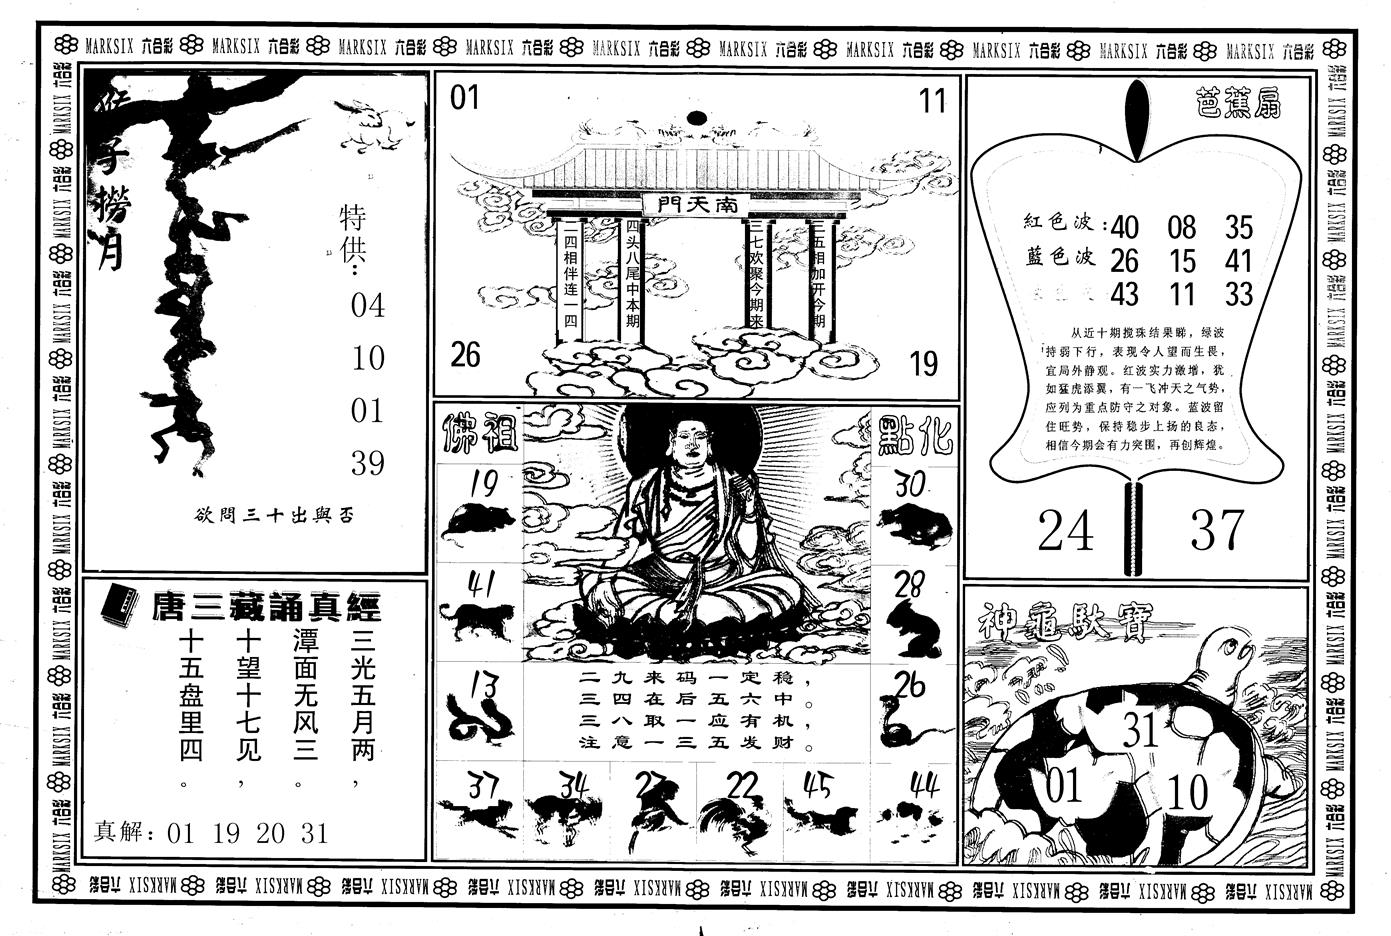 MARKSIX 六合彩 MARKSIX 六合彩 MARKSIX 六合彩 MARKSIX 六合彩 MARKSIX 六合彩 MARKSIX 六合彩 MARKSIX 六合彩 MARKSIX 六合彩 MARKSIX 六合彩 MARKSIX
猴子撈月
特供:
04
10
01
39
欲問三十出與否
唐三藏誦真經
三光五月两，
潭面无风三。
十望十七见，
十五盘里四。
真解: 01 19 20 31
01
11
南天門
二四相伴连一四
四头八尾中本期
三七欢聚今期来
三五相加开今期
26
19
佛祖
點化
19
30
41
28
13
26
二九来码一定稳，
三四在后五六中。
三八取一应有机，
注意一三五发财。
37 34 27 22 45 44
芭蕉扇
紅色波: 40 08 35
藍色波 26 15 41
43 11 33
从近十期搅珠结果睇，绿波
持弱下行，表现令人望而生畏，
宜局外静观。红波实力激增，犹
如猛虎添翼，有一飞冲天之气势，
应列为重点防守之对象。蓝波留
住旺势，保持稳步上扬的良态，
相信今期会有力突围，再创辉煌。
24
37
神龜馱寶
31
01
10